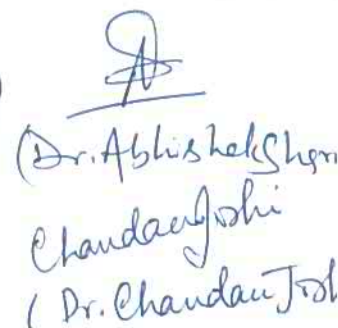 )
(Dr. Abhishek Shar
Chandan Joshi
( Dr. Chandan Josh